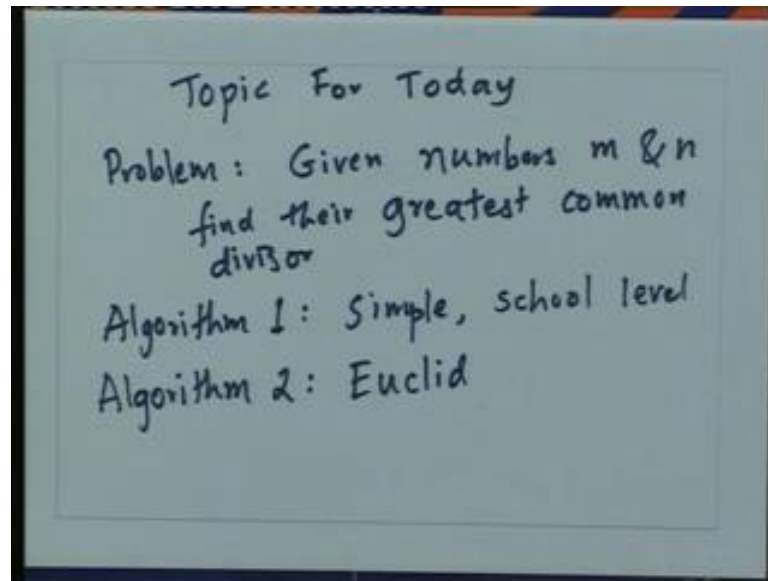 Topic For Today
Problem: Given numbers m & n
find their greatest common
divisor
Algorithm 1: Simple, school level
Algorithm 2: Euclid